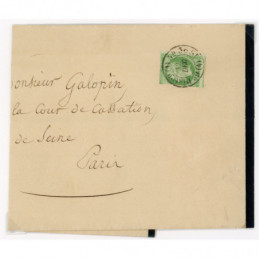 onsieur Galopin,
la Cour de Cassation,
de Seine
Paris